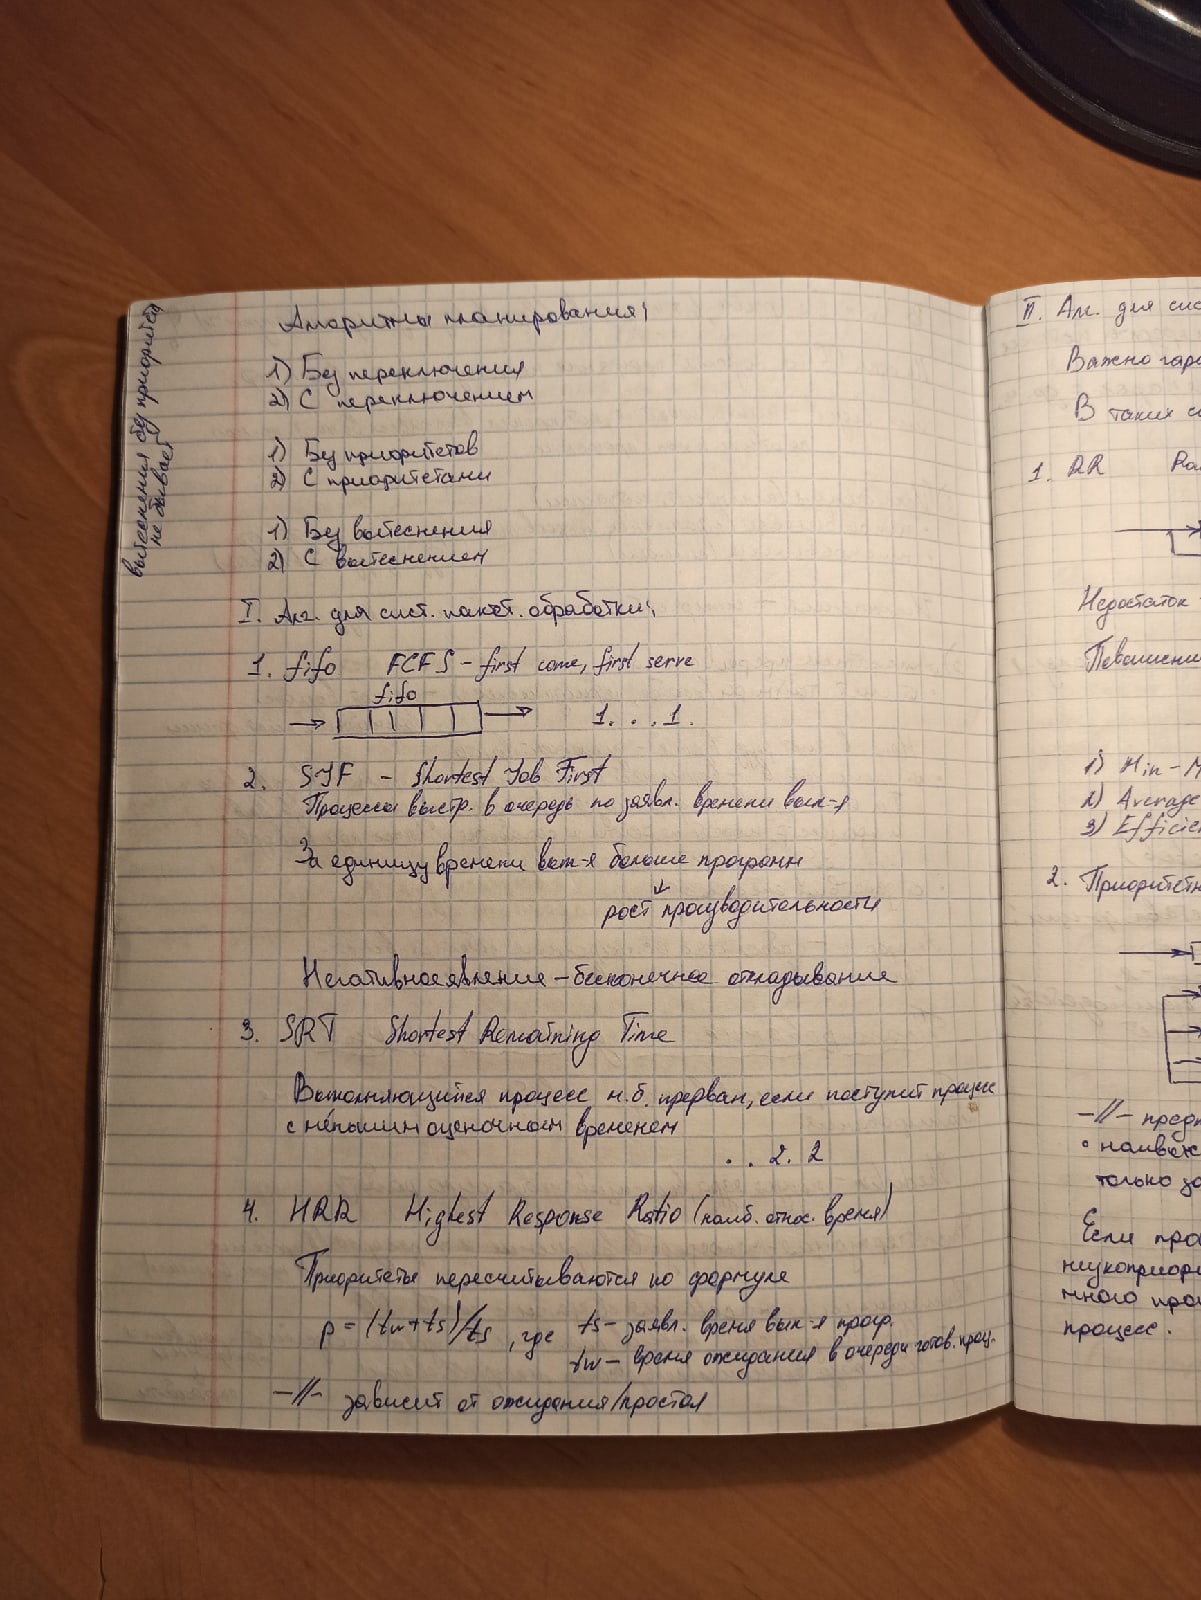 вытеснения без приоритета
не бывает
Алгоритмы планирования:
1) Без переключения
2) С переключением
1) Без приоритетов
2) С приоритетами
1) Без вытеснения
2) С вытеснением
I. Алг. для сист. пакет. обработки:
1. fifo FCFS – first come, first serve
fifo
1. . . 1.
2. SJF – Shortest Job First
Процессы выстр. в очередь по заявл. времени вып-я
За единицу времени вып-я больше программ
рост производительности
Негативное явление – бесконечное откладывание
3. SRT Shortest Remaining Time
Выполняющийся процесс м.б. прерван, если поступит процесс
с меньшим оценочным временем
. . 2. 2
4. HRR Highest Response Ratio (наиб. относ. время)
Приоритеты пересчитываются по формуле
p = (tw + ts)/ts, где ts – заявл. время вып-я прогр.
tw – время ожидания в очереди готов. проц.
–//– зависит от ожидания/простоя
II. Алг. для сис
Важно гар
В таких с
1. RR Ro
Недостаток
1) Min – M
2) Average
3) Efficien
2. Приоритетн
–//– предп
• наивыс
только за
Если про
низкоприори
много про
процесс.